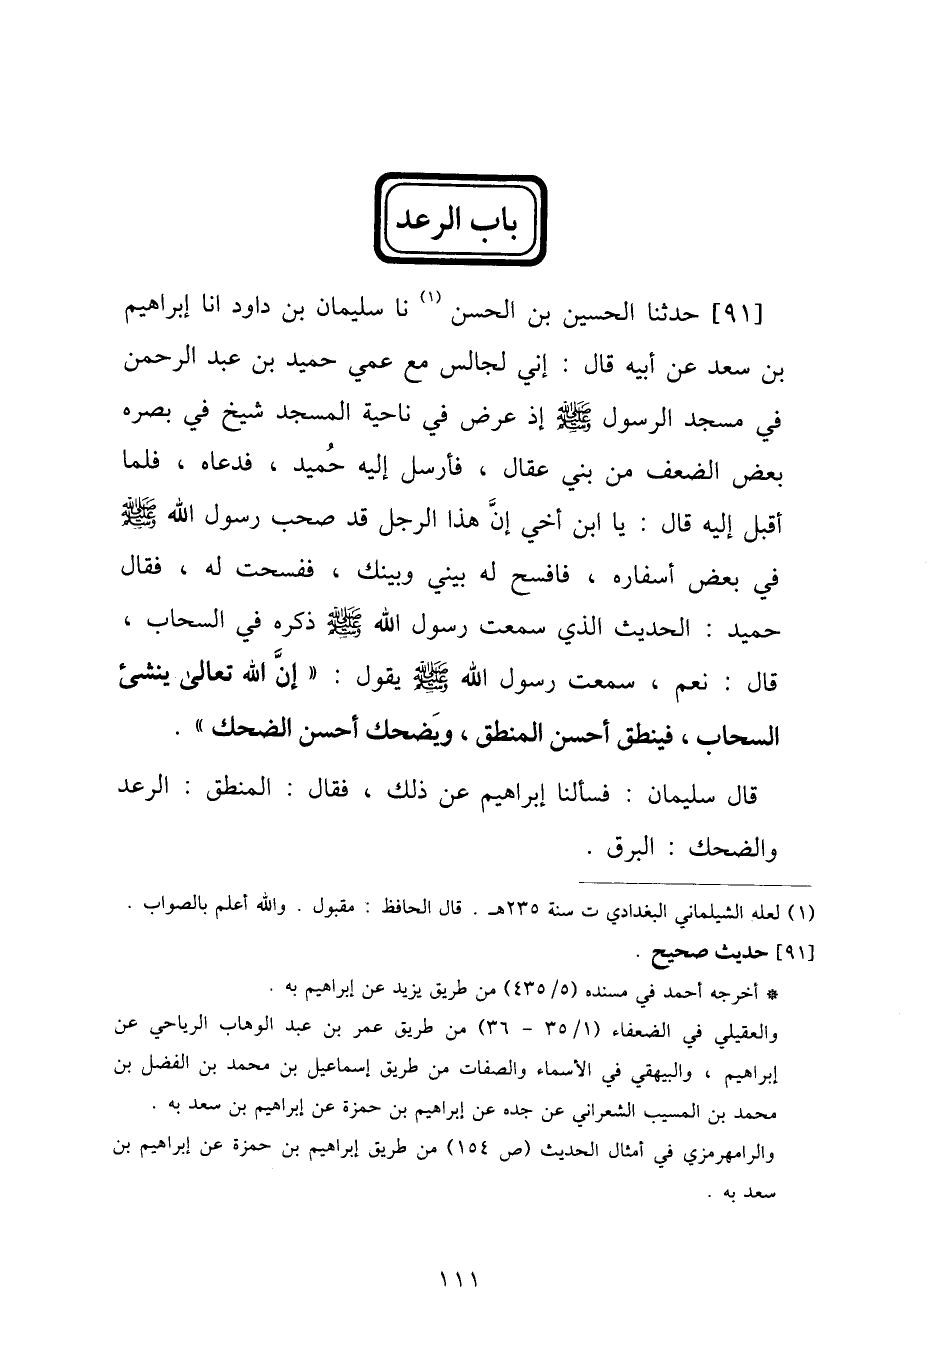 باب الرعد
[٩١] حدثنا الحسين بن الحسن (١) نا سليمان بن داود انا إبراهيم
بن سعد عن أبيه قال : إني لجالس مع عمي حميد بن عبد الرحمن
في مسجد الرسول ﷺ إذ عرض في ناحية المسجد شيخ في بصره
بعض الضعف من بني عقال ، فأرسل إليه حُميد ، فدعاه ، فلما
أقبل إليه قال : يا ابن أخي إنَّ هذا الرجل قد صحب رسول الله ﷺ
في بعض أسفاره ، فافسح له بيني وبينك ، ففسحت له ، فقال
حميد : الحديث الذي سمعت رسول الله ﷺ ذكره في السحاب ،
قال : نعم ، سمعت رسول الله ﷺ يقول : « إنَّ الله تعالىٰ ينشئ
السحاب ، فينطق أحسن المنطق ، ويَضحك أحسن الضحك » .
قال سليمان : فسألنا إبراهيم عن ذلك ، فقال : المنطق : الرعد
والضحك : البرق .
(١) لعله الشيلماني البغدادي ت سنة ٢٣٥هـ . قال الحافظ : مقبول . والله أعلم بالصواب .
[٩١] حديث صحيح .
* أخرجه أحمد في مسنده (٤٣٥/٥) من طريق يزيد عن إبراهيم به .
والعقيلي في الضعفاء (٣٥/١ - ٣٦) من طريق عمر بن عبد الوهاب الرياحي عن
إبراهيم ، والبيهقي في الأسماء والصفات من طريق إسماعيل بن محمد بن الفضل بن
محمد بن المسيب الشعراني عن جده عن إبراهيم بن حمزة عن إبراهيم بن سعد به .
والرامهرمزي في أمثال الحديث (ص ١٥٤) من طريق إبراهيم بن حمزة عن إبراهيم بن
سعد به .
١١١